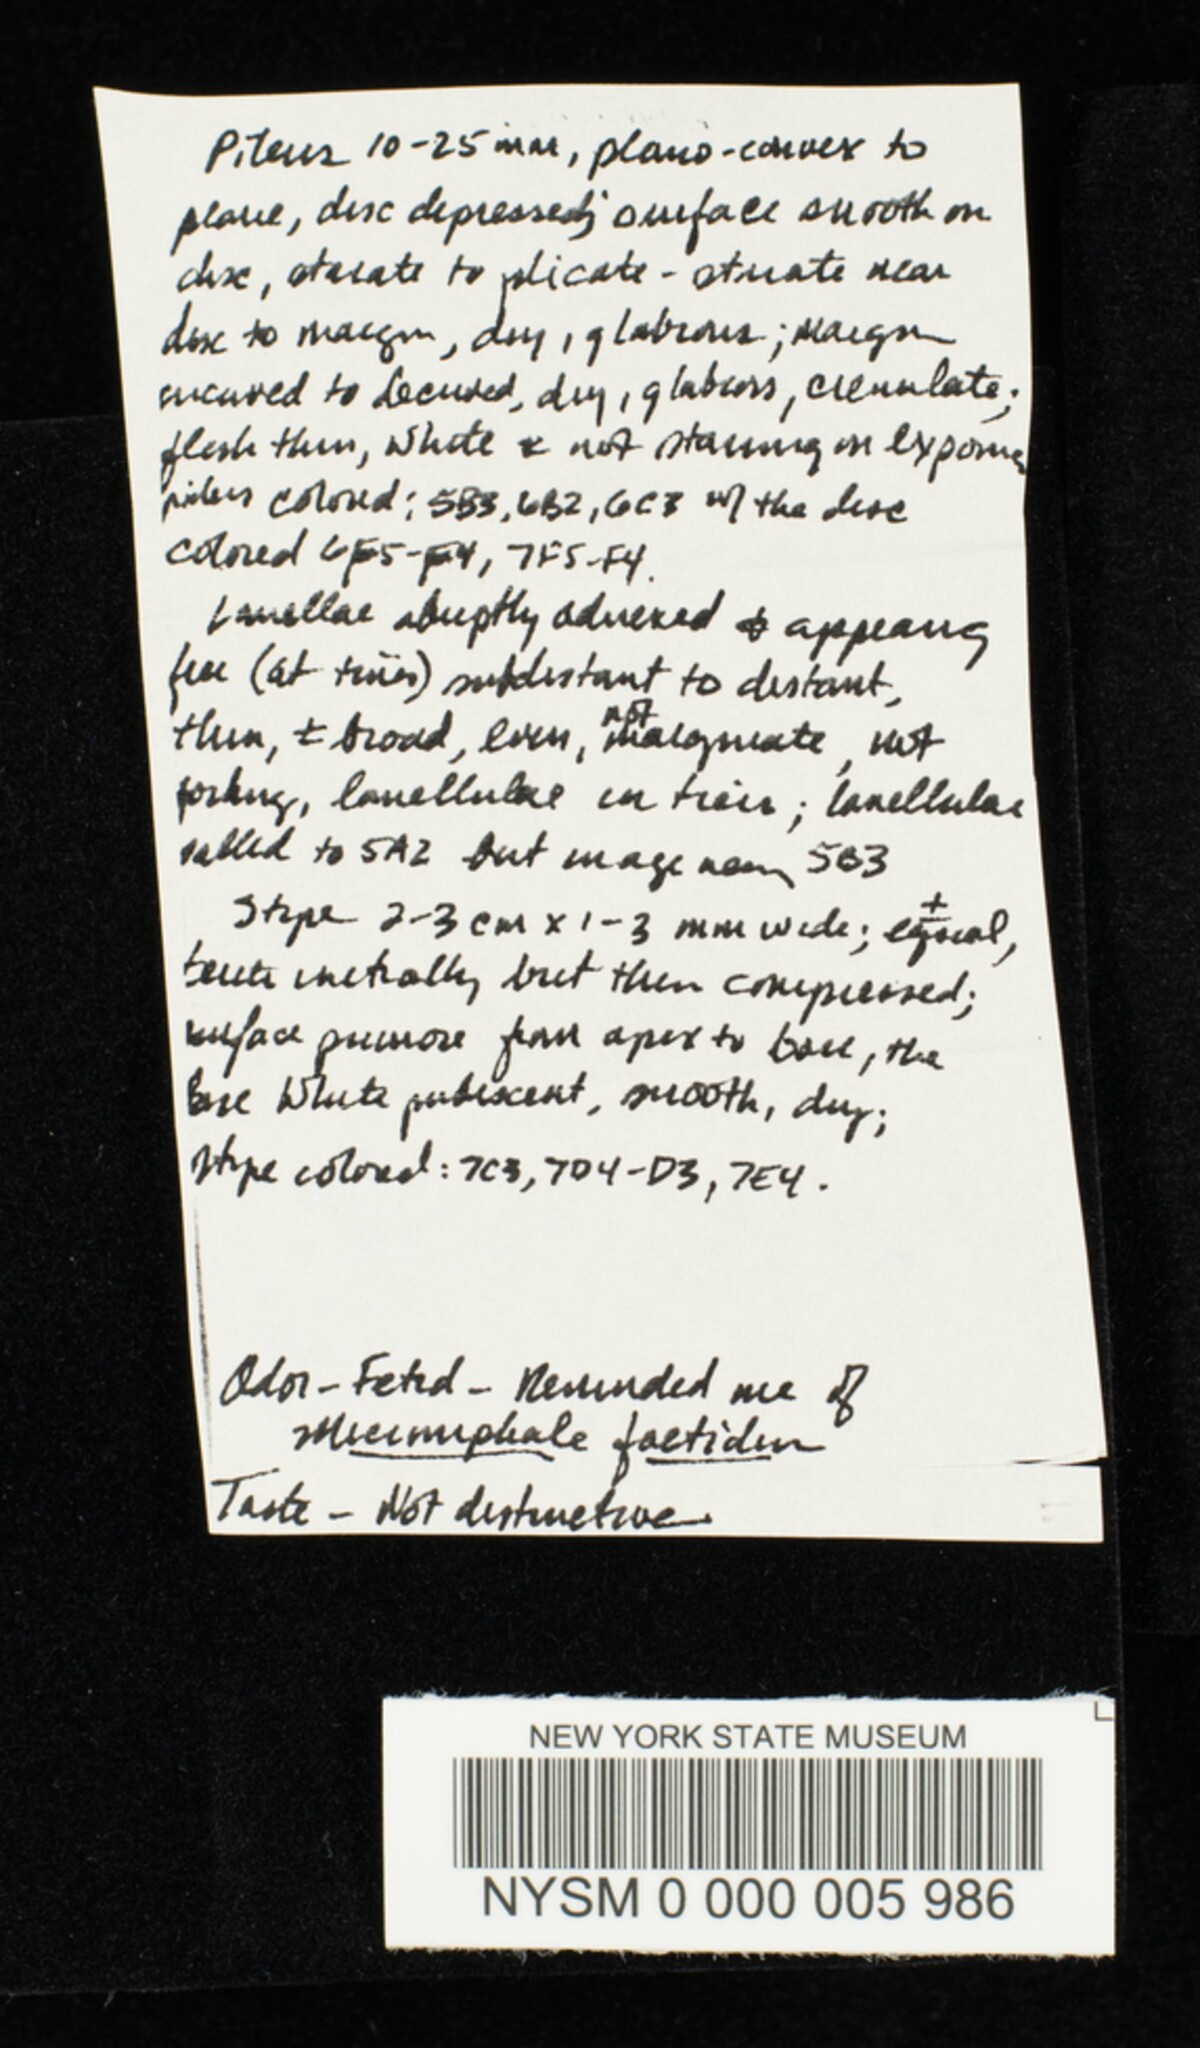 Pileus 10-25 mm, plano-convex to
plane, disc depressed; surface smooth on
disc, striate to plicate-striate near
disc to margin, dry, glabrous; margin
incurved to decurved, dry, glabrous, crenulate;
flesh thin, white & not staining on exposure
pileus colored: 5B3, 6B2, 6C3 w/ the disc
colored 6F5-F4, 7F5-F4.
Lamellae abruptly adnexed & appearing
free (at times) subdistant to distant,
thin, ± broad, even, not marginate, not
forking, lamellulae in tiers; lamellulae
to 5A2 but in age near 5B3
Stipe 2-3 cm x 1-3 mm wide; ± equal,
terete initially but then compressed;
surface pruinose from apex to base, the
base white pubescent, smooth, dry;
stipe colored: 7C3, 7D4-D3, 7E4.
Odor - Fetid - Reminded me of
Micromphale foetidum
Taste - Not distinctive.
NEW YORK STATE MUSEUM
NYSM 0 000 005 986